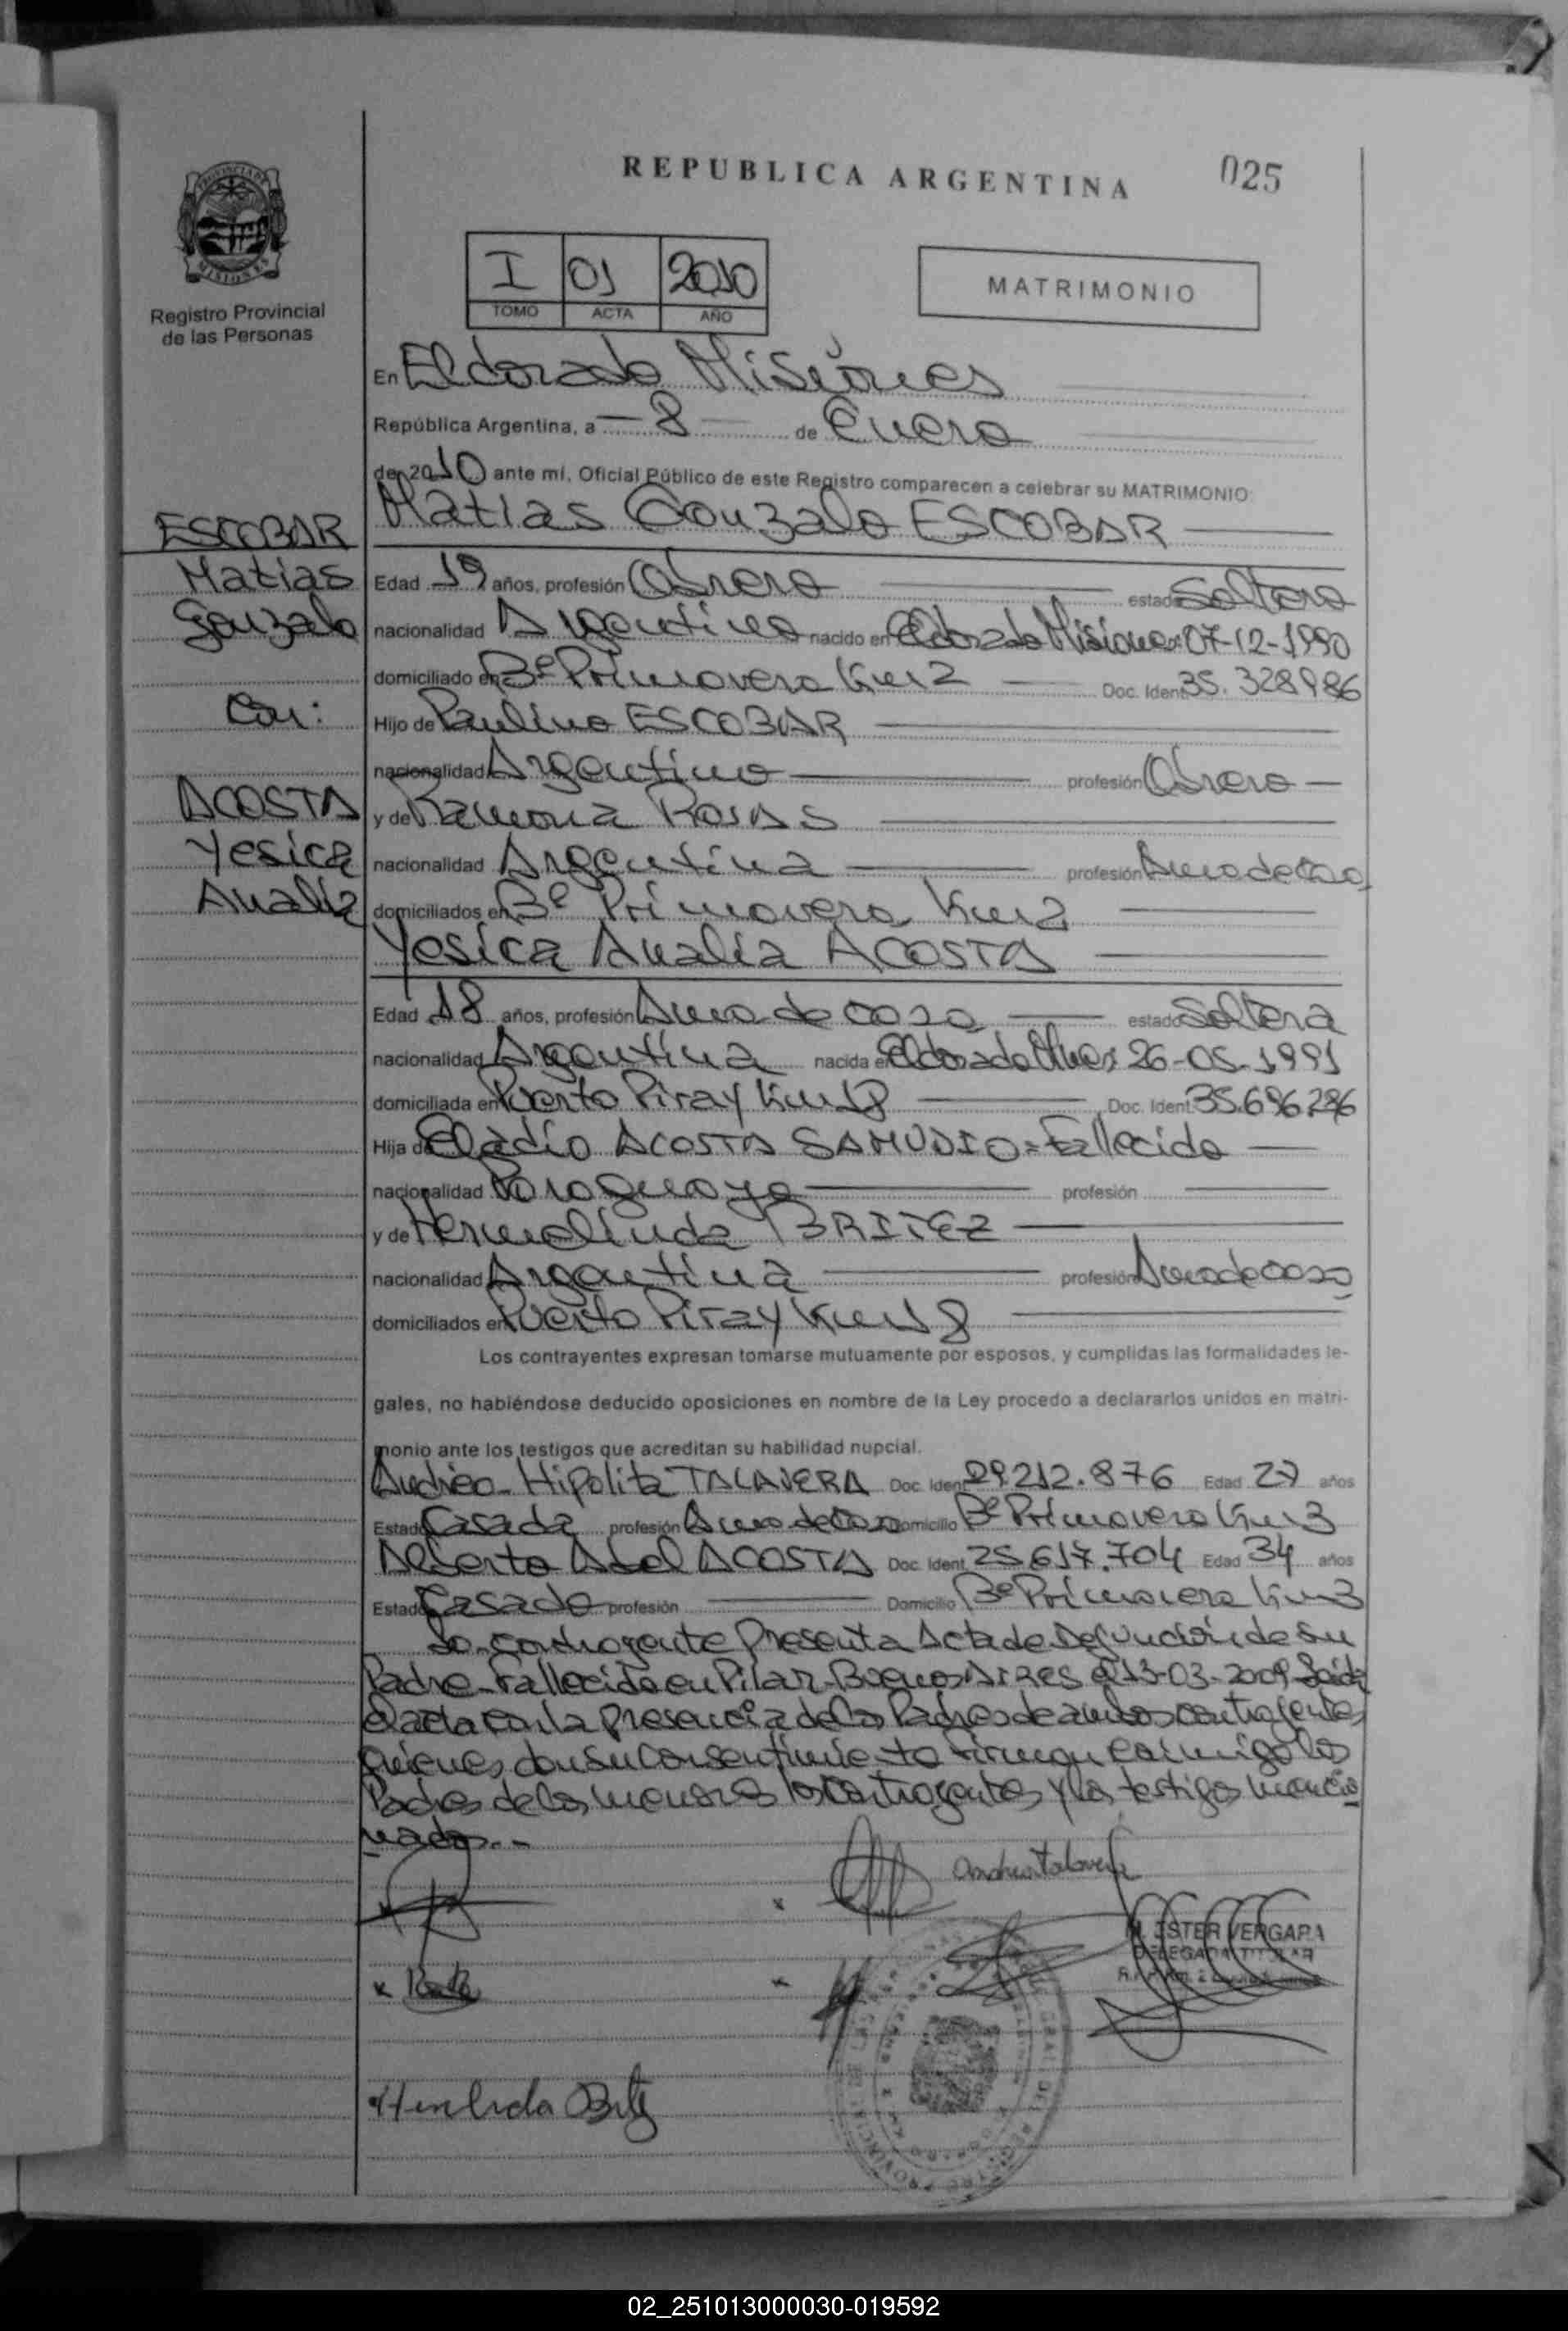 REPUBLICA ARGENTINA
025
PROVINCIA DE MISIONES
Registro Provincial
de las Personas
I 01 2010
TOMO ACTA AÑO
MATRIMONIO
En Eldorado Misiones
República Argentina, a 8 de Enero
de 2010 ante mí, Oficial Público de este Registro comparecen a celebrar su MATRIMONIO
Matias Gonzalo ESCOBAR
ESCOBAR
Matias
Gonzalo
Con:
ACOSTA
Yesica
Analia
Edad 19 años, profesión Obrero estado Soltero
nacionalidad Argentino nacido en Eldorado Misiones 07-12-1990
domiciliado en Bº Primavera Km 2 Doc. Ident. 35.328986
Hijo de Paulino ESCOBAR
nacionalidad Argentino profesión Obrero
y de Ramona ROSAS
nacionalidad Argentina profesión Ama de casa
domiciliados en Bº Primavera Km 2
Yesica Analia ACOSTA
Edad 18 años, profesión Ama de casa estado Soltera
nacionalidad Argentina nacida en Eldorado 26-05-1991
domiciliada en Puerto Piray Km 18 Doc. Ident.
Hija de Eladio ACOSTA SAMUDIO = Fallecido
nacionalidad Paraguayo profesión
y de Hermelinda BRITEZ
nacionalidad Argentina profesión Ama de casa
domiciliados en Puerto Piray Km 18
Los contrayentes expresan tomarse mutuamente por esposos, y cumplidas las formalidades le-
gales, no habiéndose deducido oposiciones en nombre de la Ley procedo a declararlos unidos en matri-
monio ante los testigos que acreditan su habilidad nupcial.
Andrea Hipolita TALAVERA Doc. Ident. 29.212.876 Edad 27 años
Estado Casada profesión Ama de casa Domicilio Bº Primavera Km 3
Alberto Abel ACOSTA Doc. Ident. 25.617.704 Edad 34 años
Estado Casado profesión Domicilio Bº Primavera Km 3
La contrayente presenta Acta de Defunción de su
Padre Fallecido en Pilar Buenos Aires el 13-03-2009 Leida
el acta con la presencia de los Padres de ambos contrayentes
quienes dan su consentimiento firman conmigo los
Padres de los menores los contrayentes y los testigos mencio
nados.-
Andrea Talavera
ESTER VERGARA
DELEGADA TITULAR
02_251013000030-019592